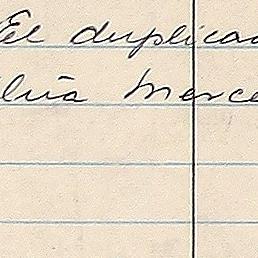 El duplica
lia Merce